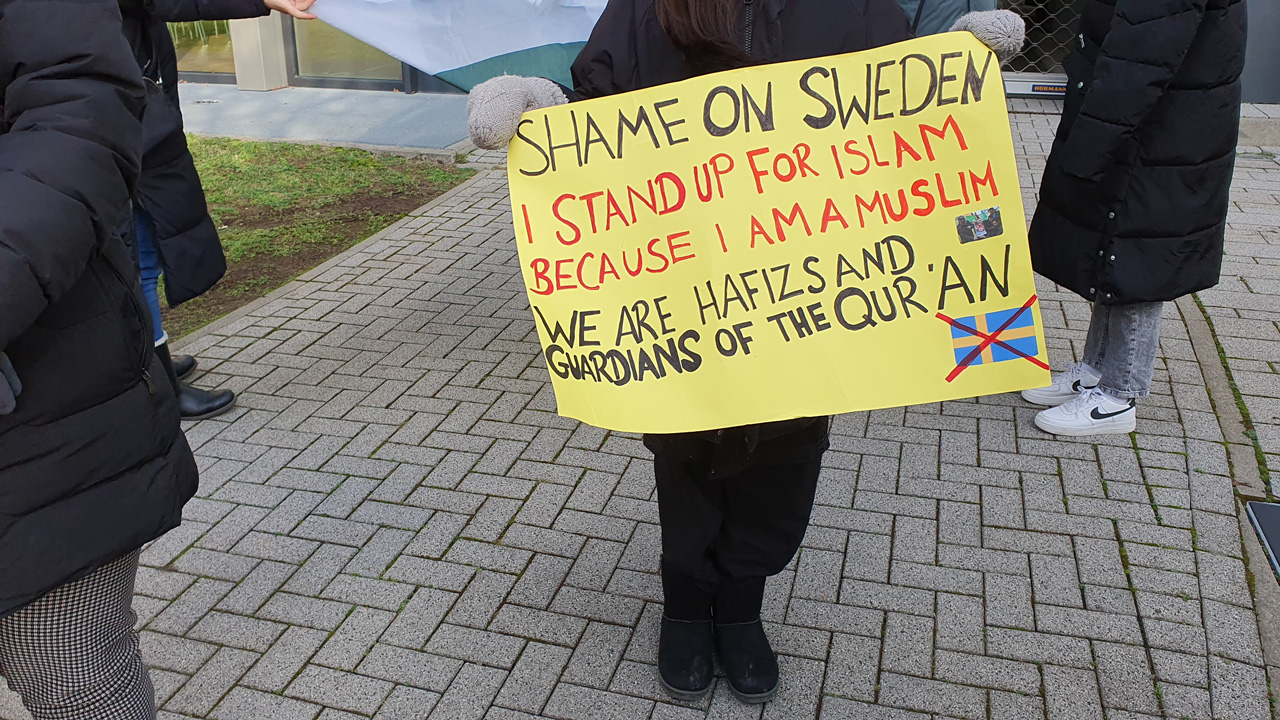 SHAME ON SWEDEN
I STAND UP FOR ISLAM
BECAUSE I AM A MUSLIM
WE ARE HAFIZS AND
GUARDIANS OF THE QUR'AN
HÖRMANN